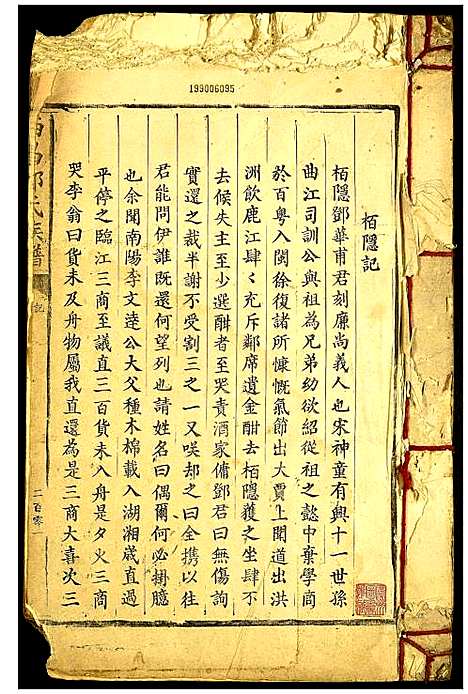 199006095
栢隱記
栢隱鄧華甫君刻廉尚義人也宋神童有興十一世孫
曲江司訓公與祖為兄弟幼欲紹從祖之懿中棄學商
於百粵入閩徐復諸所慷慨氣節出大賈上聞道出洪
洲飲鹿江肆〻充斥鄰席遺金酣去栢隱獲之坐肆不
去候失主至少選酣者至哭責酒家傭鄧君曰無傷詢
實還之裁半謝不受割三之一又咲却之曰全携以往
君能問伊誰既還何望列也請姓名曰偶爾何必掛臆
也余聞南陽李文逵公大父種木棉載入湖湘歲直過
平停之臨江三商至議直三百貨未入舟是夕火三商
哭李翁曰貨未及舟物屬我直還為是三商大喜次三
氏族譜
記
二百零一